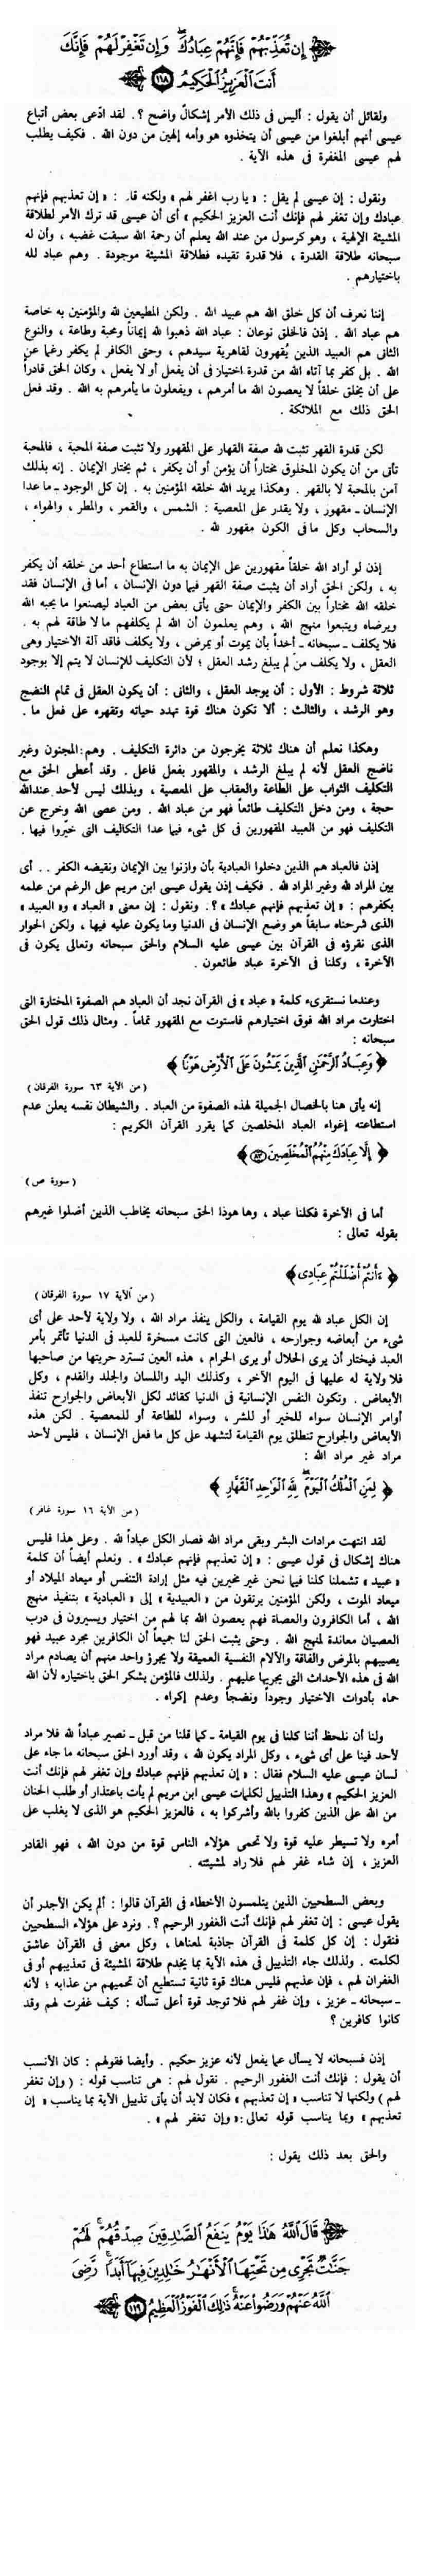 إِن تُعَذِّبْهُمْ فَإِنَّهُمْ عِبَادُكَ وَإِن تَغْفِرْ لَهُمْ فَإِنَّكَ
أَنتَ الْعَزِيزُ الْحَكِيمُ ﴿١١٨﴾
ولقائل أن يقول : أليس فى ذلك الأمر إشكالٌ واضح ؟. لقد ادّعى بعض أتباع
عيسى أنهم أبلغوا من عيسى أن يتخذوه هو وأمه إلهين من دون الله . فكيف يطلب
لهم عيسى المغفرة فى هذه الآية .
ونقول : إن عيسى لم يقل : « يا رب اغفر لهم » ولكنه قال : « إن تعذبهم فإنهم
عبادك وإن تغفر لهم فإنك أنت العزيز الحكيم » أى أن عيسى قد ترك الأمر لطلاقة
المشيئة الإلهية ، وهو كرسول من عند الله يعلم أن رحمة الله سبقت غضبه ، وأن له
سبحانه طلاقة القدرة ، فلا قدرة تقيده فطلاقة المشيئة موجودة . وهم عباد لله
باختيارهم .
إننا نعرف أن كل خلق الله هم عبيد الله . ولكن المطيعين لله والمؤمنين به خاصة
هم عباد الله . إذن فالخلق نوعان : عباد الله ذهبوا لله إيماناً ومحبة وطاعة ، والنوع
الثانى هم العبيد الذين يُقهرون لقاهرية سيدهم ، وحتى الكافر لم يكفر رغما عن
الله . بل كفر بما آتاه الله من قدرة اختيار فى أن يفعل أو لا يفعل ، وكان الحق قادراً
على أن يخلق خلقاً لا يعصون الله ما أمرهم ، ويفعلون ما يأمرهم به الله . وقد فعل
الحق ذلك مع الملائكة .
لكن قدرة القهر تثبت لله صفة القهار على المقهور ولا تثبت صفة المحبة ، فالمحبة
تأتى من أن يكون المخلوق مختاراً أن يؤمن أو أن يكفر ، ثم يختار الإيمان . إنه بذلك
آمن بالمحبة لا بالقهر . وهكذا يريد الله خلقه المؤمنين به . إن كل الوجود ـ ما عدا
الإنسان ـ مقهور ، ولا يقدر على المعصية : الشمس ، والقمر ، والمطر ، والهواء ،
والسحاب وكل ما فى الكون مقهور لله .
إذن لو أراد الله خلقاً مقهورين على الإيمان به ما استطاع أحد من خلقه أن يكفر
به ، ولكن الحق أراد أن يثبت صفة القهر فيما دون الإنسان ، أما فى الإنسان فقد
خلقه الله مختاراً بين الكفر والإيمان حتى يأتى بعض من العباد ليصنعوا ما يحبه الله
ويرضاه ويتبعوا منهج الله ، وهم يعلمون أن الله لم يكلفهم ما لا طاقة لهم به .
فلا يكلف ـ سبحانه ـ أحداً بأن يموت أو يمرض ، ولا يكلف فاقد آلة الاختيار وهى
العقل ، ولا يكلف من لم يبلغ رشد العقل ؛ لأن التكليف للإنسان لا يتم إلا بوجود
ثلاثة شروط : الأول : أن يوجد العقل ، والثانى : أن يكون العقل فى تمام النضج
وهو الرشد ، والثالث : ألا تكون هناك قوة تهدد حياته وتقهره على فعل ما .
وهكذا نعلم أن هناك ثلاثة يخرجون من دائرة التكليف . وهم : المجنون وغير
ناضج العقل لأنه لم يبلغ الرشد ، والمقهور بفعل فاعل . وقد أعطى الحق مع
التكليف الثواب على الطاعة والعقاب على المعصية ، وبذلك ليس لأحد عندالله
حجة ، ومن دخل التكليف طائعاً فهو من عباد الله . ومن عصى الله وخرج عن
التكليف فهو من العبيد المقهورين فى كل شىء فيما عدا التكاليف التى خيّروا فيها .
إذن فالعباد هم الذين دخلوا العبادية بأن وازنوا بين الإيمان ونقيضه الكفر . . أى
بين المراد لله وغير المراد لله . فكيف إذن يقول عيسى ابن مريم على الرغم من علمه
بكفرهم : « إن تعذبهم فإنهم عبادك » ؟. ونقول : إن معنى « العباد » و« العبيد »
الذى شرحناه سابقاً هو وضع الإنسان فى الدنيا وما يكون عليه فيها ، ولكن الحوار
الذى نقرؤه فى القرآن بين عيسى عليه السلام والحق سبحانه وتعالى يكون فى
الآخرة ، وكلنا فى الآخرة عباد طائعون .
وعندما نستقرىء كلمة « عباد » فى القرآن نجد أن العباد هم الصفوة المختارة التى
اختارت مراد الله فوق اختيارهم فاستوت مع المقهور تماماً . ومثال ذلك قول الحق
سبحانه :
﴿ وَعِبَادُ الرَّحْمَـٰنِ الَّذِينَ يَمْشُونَ عَلَى الْأَرْضِ هَوْنًا ﴾
( من الآية ٦٣ سورة الفرقان )
إنه يأتى هنا بالخصال الجميلة لهذه الصفوة من العباد . والشيطان نفسه يعلن عدم
استطاعته إغواء العباد المخلصين كما يقرر القرآن الكريم :
﴿ إِلَّا عِبَادَكَ مِنْهُمُ الْمُخْلَصِينَ ﴿٨٣﴾ ﴾
( سورة ص )
أما فى الآخرة فكلنا عباد ، وها هوذا الحق سبحانه يخاطب الذين أضلوا غيرهم
بقوله تعالى :
﴿ ءَأَنتُمْ أَضْلَلْتُمْ عِبَادِى ﴾
( من الآية ١٧ سورة الفرقان )
إن الكل عباد لله يوم القيامة ، والكل ينفذ مراد الله ، ولا ولاية لأحد على أى
شىء من أبعاضه وجوارحه ، فالعين التى كانت مسخرة للعبد فى الدنيا تأتمر بأمر
العبد فيختار أن يرى الحلال أو يرى الحرام ، هذه العين تسترد حريتها من صاحبها
فلا ولاية له عليها فى اليوم الآخر ، وكذلك اليد واللسان والجلد والقدم ، وكل
الأبعاض . وتكون النفس الإنسانية فى الدنيا كقائد لكل الأبعاض والجوارح تنفذ
أوامر الإنسان سواء للخير أو للشر ، وسواء للطاعة أو للمعصية . لكن هذه
الأبعاض والجوارح تنطلق يوم القيامة لتشهد على كل ما فعل الإنسان ، فليس لأحد
مراد غير مراد الله :
﴿ لِمَنِ الْمُلْكُ الْيَوْمَ لِلَّهِ الْوَاحِدِ الْقَهَّارِ ﴾
( من الآية ١٦ سورة غافر )
لقد انتهت مرادات البشر وبقى مراد الله فصار الكل عباداً لله . وعلى هذا فليس
هناك إشكال فى قول عيسى : « إن تعذبهم فإنهم عبادك » . ونعلم أيضاً أن كلمة
« عبيد » تشملنا كلنا فيما نحن غير مخيرين فيه مثل إرادة التنفس أو ميعاد الميلاد أو
ميعاد الموت ، ولكن المؤمنين يرتقون من « العبيدية » إلى « العبادية » بتنفيذ منهج
الله ، أما الكافرون والعصاة فهم يعصون الله بما لهم من اختيار ويسيرون فى درب
العصيان معاندة لمنهج الله . وحتى يثبت الحق لنا جميعاً أن الكافرين مجرد عبيد فهو
يصيبهم بالمرض والفاقة والآلام النفسية العميقة ولا يجرؤ واحد منهم أن يصادم مراد
الله فى هذه الأحداث التى يجريها عليهم . ولذلك فالمؤمن يشكر الحق باختياره لأن الله
حماه بأدوات الاختيار وجوداً ونضجاً وعدم إكراه .
ولنا أن نلحظ أننا كلنا فى يوم القيامة ـ كما قلنا من قبل ـ نصير عباداً لله فلا مراد
لأحد فينا على أى شىء ، وكل المراد يكون لله ، وقد أورد الحق سبحانه ما جاء على
لسان عيسى عليه السلام فقال : « إن تعذبهم فإنهم عبادك وإن تغفر لهم فإنك أنت
العزيز الحكيم » وهذا التذييل لكلمات عيسى ابن مريم لم يأت باعتذار أو طلب الحنان
من الله على الذين كفروا بالله وأشركوا به ، فالعزيز الحكيم هو الذى لا يغلب على
أمره ولا تسيطر عليه قوة ولا تحمى هؤلاء الناس قوة من دون الله ، فهو القادر
العزيز ، إن شاء غفر لهم فلا راد لمشيئته .
وبعض السطحيين الذين يتلمسون الأخطاء فى القرآن قالوا : ألم يكن الأجدر أن
يقول عيسى : إن تغفر لهم فإنك أنت الغفور الرحيم ؟. ونرد على هؤلاء السطحيين
فنقول : إن كل كلمة فى القرآن جاذبة لمعناها ، وكل معنى فى القرآن عاشق
لكلمته . ولذلك جاء التذييل فى هذه الآية بما يخدم طلاقة المشيئة فى تعذيبهم أو فى
الغفران لهم ، فإن عذبهم فليس هناك قوة ثانية تستطيع أن تحميهم من عذابه ؛ لأنه
ـ سبحانه ـ عزيز ، وإن غفر لهم فلا توجد قوة أعلى تسأله : كيف غفرت لهم وقد
كانوا كافرين ؟
إذن فسبحانه لا يسأل عما يفعل لأنه عزيز حكيم . وأيضا فقولهم : كان الأنسب
أن يقول : فإنك أنت الغفور الرحيم . نقول لهم : هى تناسب قوله : ( وإن تغفر
لهم ) ولكنها لا تناسب « إن تعذبهم » فكان لابد أن يأتى تذييل الآية بما يناسب « إن
تعذبهم » وبما يناسب قوله تعالى : « وإن تغفر لهم » .
والحق بعد ذلك يقول :
قَالَ اللَّهُ هَـٰذَا يَوْمُ يَنفَعُ الصَّـٰدِقِينَ صِدْقُهُمْ لَهُمْ
جَنَّـٰتٌ تَجْرِى مِن تَحْتِهَا الْأَنْهَـٰرُ خَـٰلِدِينَ فِيهَا أَبَدًا رَّضِىَ
اللَّهُ عَنْهُمْ وَرَضُوا عَنْهُ ذَٰلِكَ الْفَوْزُ الْعَظِيمُ ﴿١١٩﴾